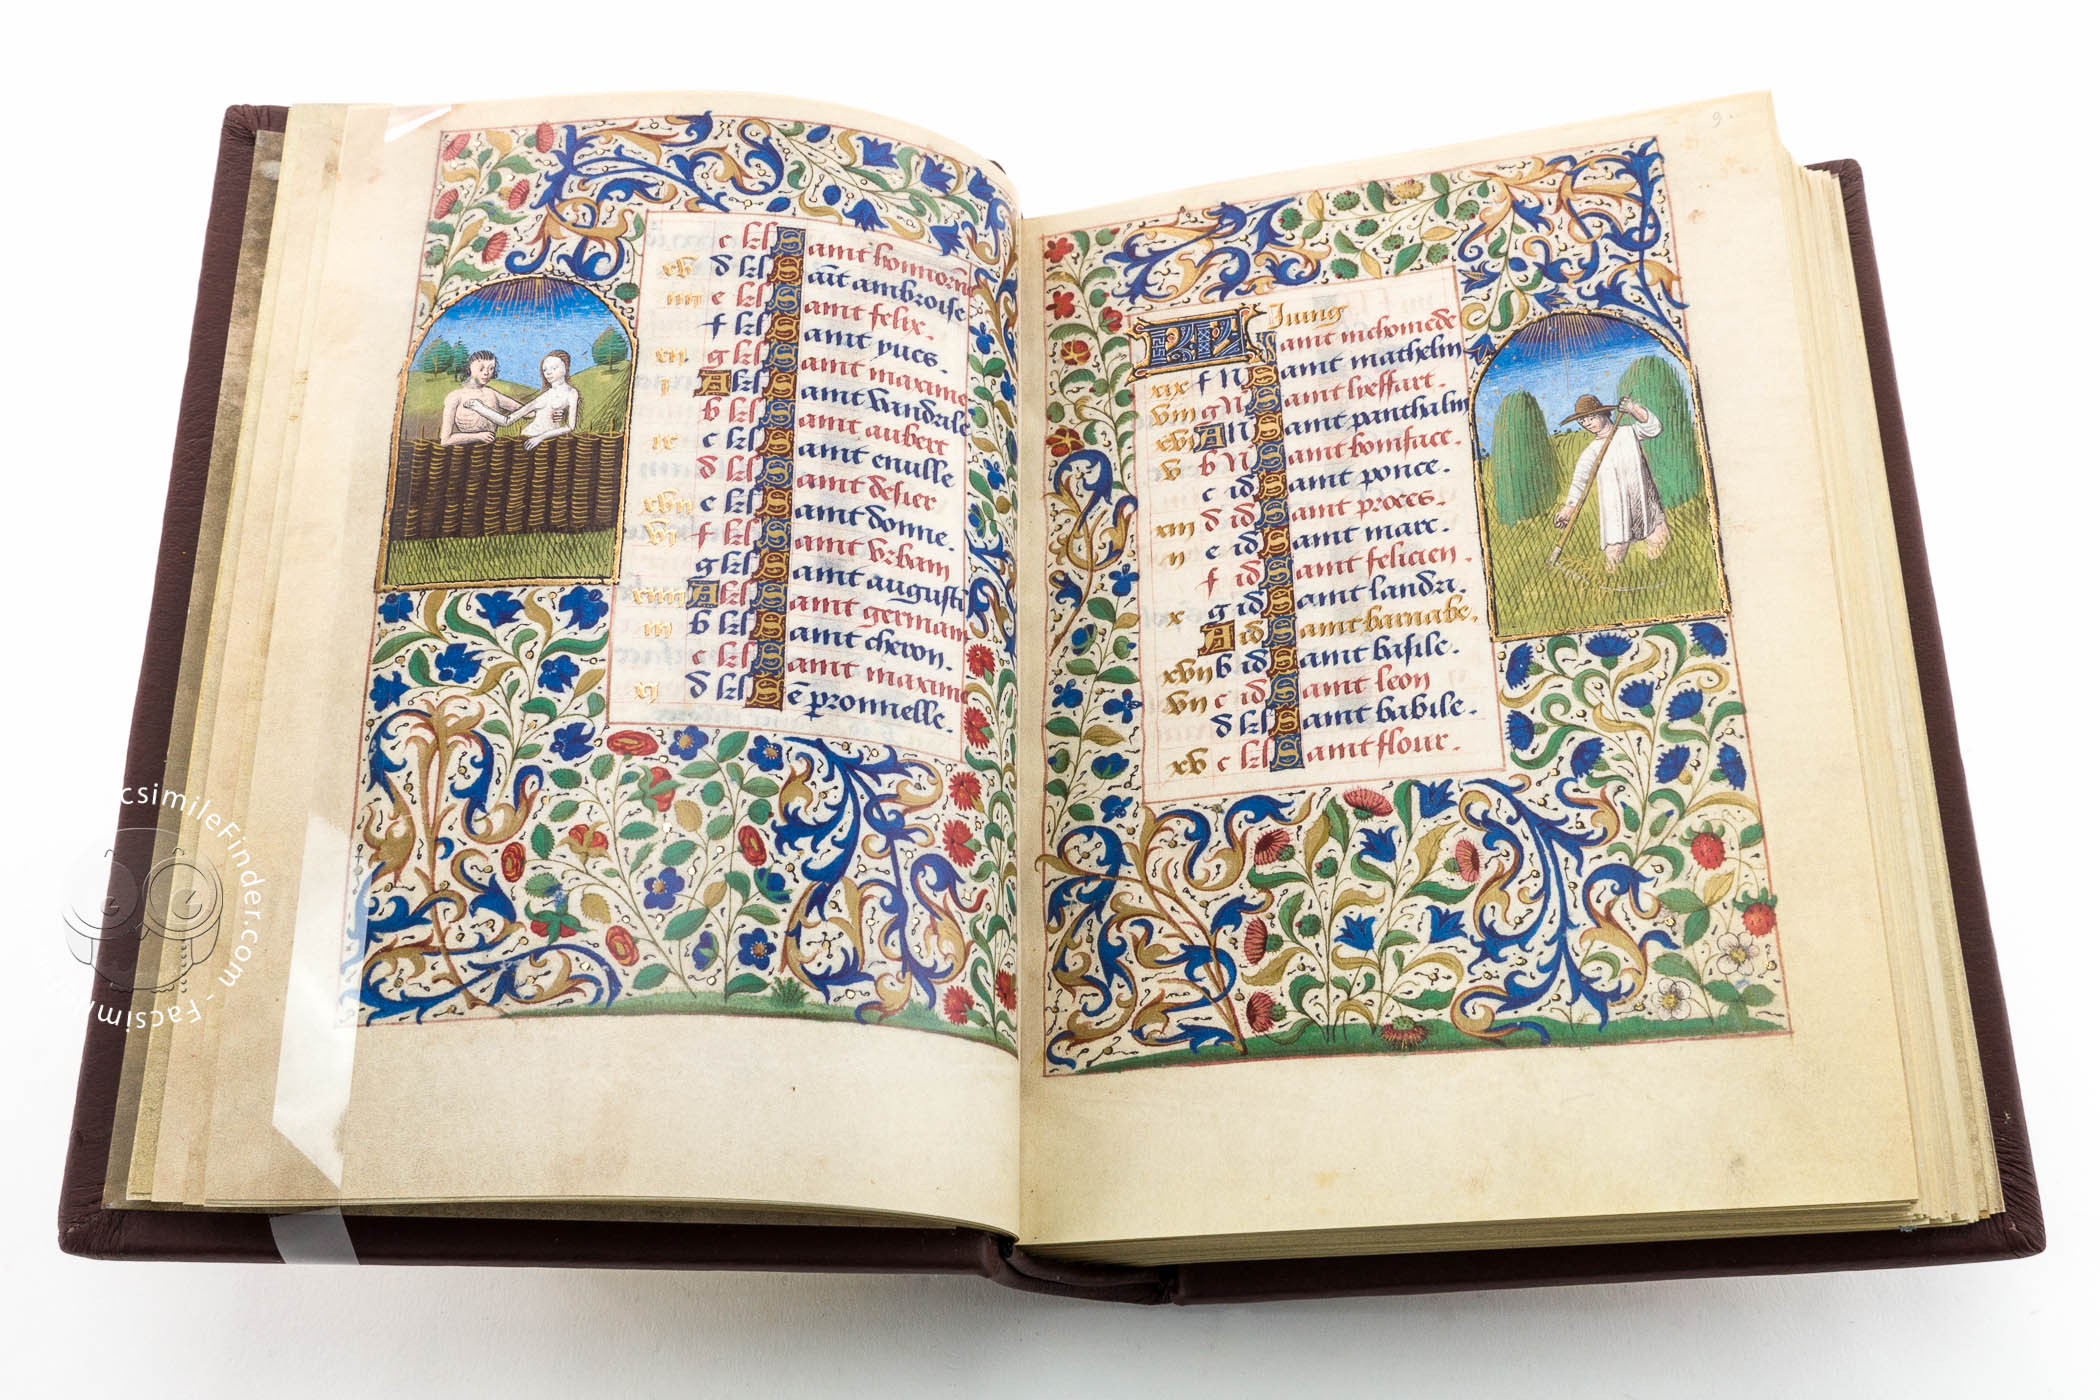 c kl Saint bonnou
xv d kl Sait ambroise
iiii e kl Saint felix.
f kl Saint yues.
xii g kl Saint maxime
i A kl Saint vandrile
b kl Saint aubert
ix c kl Saint enulle
d kl Saint desier
xvii e kl Saint donne.
vi f kl Saint vrbain
g kl Saint augusti
xiiii A kl Saint germain
iii b kl Saint cheron.
c kl Saint maxime
xi d kl Se pronnelle.
9.
KL Juing
Saint nichomede
xix f N Saint mathelin
viii g N Saint lieffart.
xvi A N Saint panthalin
v b N Saint boniface.
c id Saint ponce.
xiii d id Saint proces.
ii e id Saint marc.
f id Saint felicien.
x g id Saint landri.
A id Saint barnabe.
xvii b id Saint basile.
vii c id Saint leon
d kl Saint babile.
xv c kl Saint flour.
csimileFinder.com - Facsimi